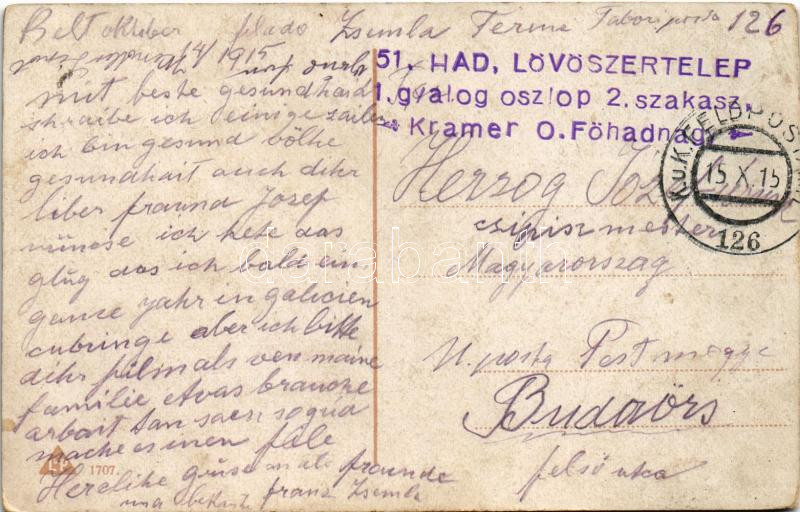 Belt oktober feladó Zsemla Ferenc Tabori posta 126
4/1915
51. HAD, LÖVÖSZERTELEP
1.gyalog oszlop 2. szakasz.
Kramer O. Föhadnagy
K.u.K. FELDPOSTAMT
15 X 15
126
mit beste gesundhaid
schraibe ich einige zailen
ich bin gesund bölhe
gesundhait auch dihr
liber fraund Josef
münose ich hete das
glüg das ich bald ein
ganze yahr in galicien
cubringe aber ich bitte
dihr filmals ven maine
familie etvas brauche
arbait tan saen so gud
mache es inen
Herclihe grüse an ale fraunde
und franz Zsemla
Herzog
csipisz mester
Magyarország
U. posta Pest megye
Budaörs
felső utca
1707.